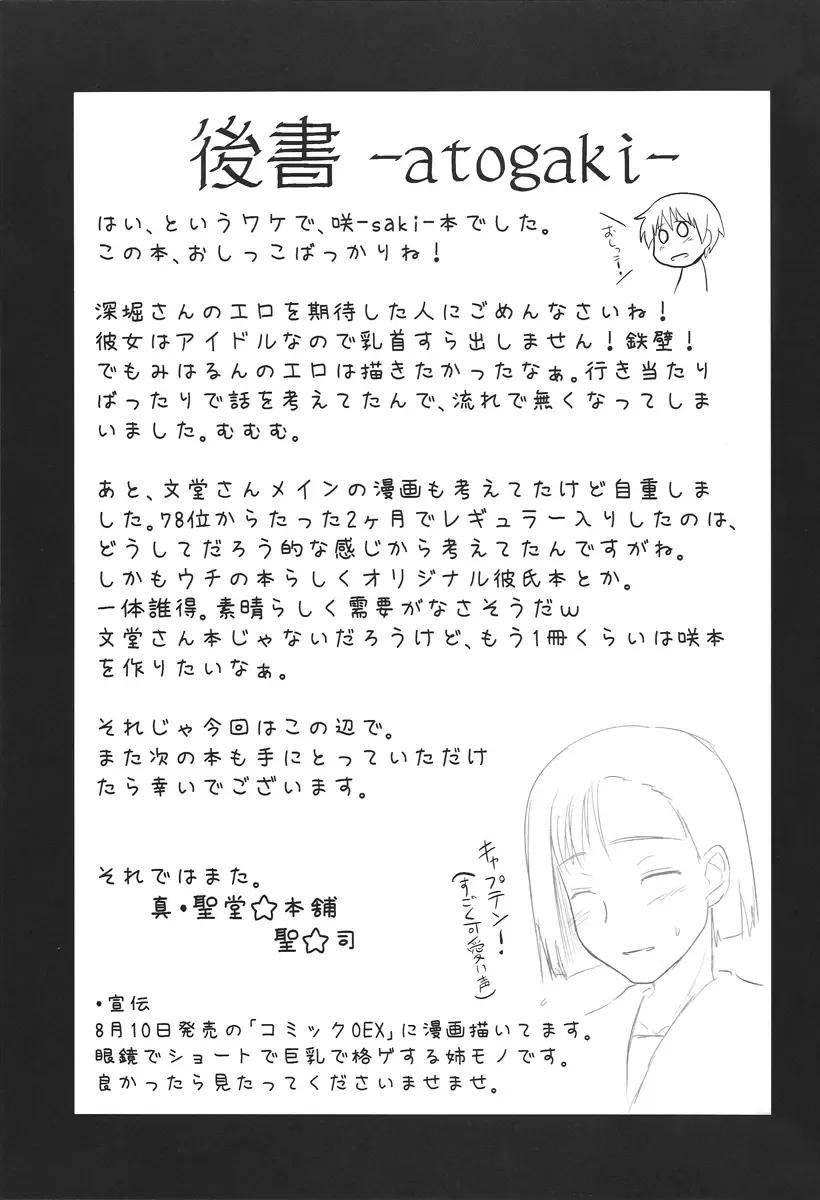 後書 -atogaki-
はい、というワケで、咲-saki-本でした。
この本、おしっこばっかりね！
おしっこー！
深堀さんのエロを期待した人にごめんなさいね！
彼女はアイドルなので乳首すら出しません！鉄壁！
でもみはるんのエロは描きたかったなぁ。行き当たり
ばったりで話を考えてたんで、流れで無くなってしま
いました。むむむ。
あと、文堂さんメインの漫画も考えてたけど自重しま
した。78位からたった2ヶ月でレギュラー入りしたのは、
どうしてだろう的な感じから考えてたんですがね。
しかもウチの本らしくオリジナル彼氏本とか。
一体誰得。素晴らしく需要がなさそうだw
文堂さん本じゃないだろうけど、もう1冊くらいは咲本
を作りたいなぁ。
それじゃ今回はこの辺で。
また次の本も手にとっていただけ
たら幸いでございます。
それではまた。
真・聖堂☆本舗
聖☆司
キャプテン！
(すごく可愛い声)
・宣伝
8月10日発売の「コミック0EX」に漫画描いてます。
眼鏡でショートで巨乳で格ゲする姉モノです。
良かったら見たってくださいませませ。